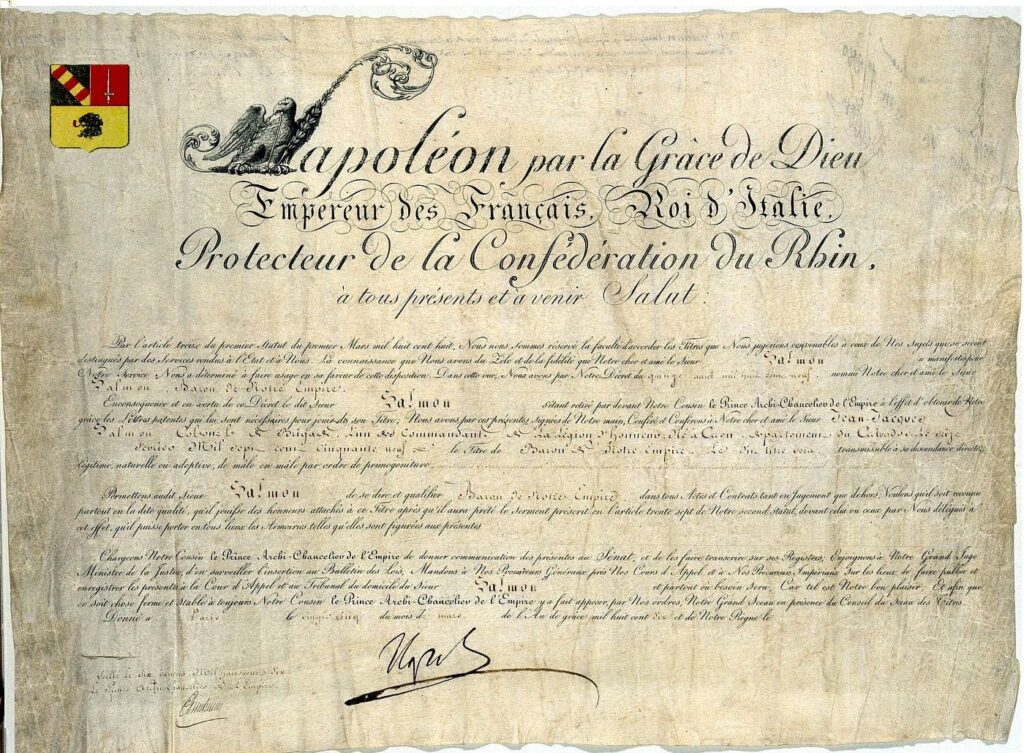 Napoléon par la Grâce de Dieu
Empereur des Français, Roi d'Italie,
Protecteur de la Confédération du Rhin,
à tous présents et à venir Salut:
Par l'article treize du premier Statut du premier Mars mil huit cent huit, Nous nous sommes réservé la faculté d'accorder les Titres que Nous jugerions convenables à ceux de Nos Sujets qui se seront
distingués par des Services rendus à l'Etat et à Nous. La connaissance que Nous avons du Zèle et de la fidélité que Notre cher et amé le Sieur Salmon a manifestés pour
Notre Service, Nous a déterminé à faire usage en sa faveur de cette disposition. Dans cette vue, Nous avons par Notre Décret du quinze août mil huit cent neuf nommé Notre cher et amé le Sieur
Salmon Baron de Notre Empire.
En conséquence et en vertu de ce Décret le dit Sieur Salmon s'étant retiré par devant Notre Cousin le Prince Archi-Chancelier de l'Empire à l'effet d'obtenir de Notre
grâce les Lettres patentes qui lui sont nécessaires pour jouir de son Titre; Nous avons par ces présentes Signées de Notre main, Conféré et Conférons à Notre cher et amé le Sieur Jean Jacques
Salmon Colonel de Brigade, l'un des Commandants de la Légion d'honneur, né à Caen, département du Calvados le
février Mil sept cent cinquante neuf le titre de Baron de Notre Empire. Le dit titre sera transmissible à sa descendance directe,
légitime, naturelle ou adoptive, de mâle en mâle par ordre de primogéniture.
Permettons audit Sieur Salmon de se dire et qualifier Baron de Notre Empire dans tous Actes et Contrats tant en Jugement que dehors; Voulons qu'il soit reconnu
partout en la dite qualité, qu'il jouisse des honneurs attachés à ce Titre après qu'il aura prêté le Serment prescrit en l'article trente sept de Notre second statut, devant celui ou ceux par Nous délégués à
cet effet, qu'il puisse porter en tous lieux les Armoiries telles qu'elles sont figurées aux présentes
Chargeons Notre Cousin le Prince Archi-Chancelier de l'Empire de donner communication des présentes au Sénat, et de les faire transcrire sur ses Registres; Enjoignons à Notre Grand Juge
Ministre de la Justice, d'en surveiller l'insertion au Bulletin des Lois, Mandons à Nos Procureurs Généraux près Nos Cours d'Appel et à Nos Procureurs Impériaux Sur les lieux, de faire publier et
enregistrer les présentes à la Cour d'Appel et au Tribunal du domicile du Sieur Salmon et partout où besoin sera; Car tel est Notre bon plaisir; Et afin que
ce soit chose ferme et stable à toujours Notre Cousin le Prince Archi-Chancelier de l'Empire y a fait apposer, par Nos ordres, Notre Grand Sceau en présence du Conseil du Sceau des Titres.
Donné à Paris le vingt cinq du mois de mars de l'An de grâce mil huit cent dix et de Notre Règne le
Scellé le dix Mil huit cent dix
Le Prince Archichancelier de l'Empire